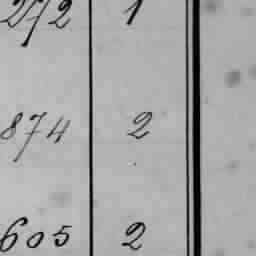 272 1
874 2
605 2